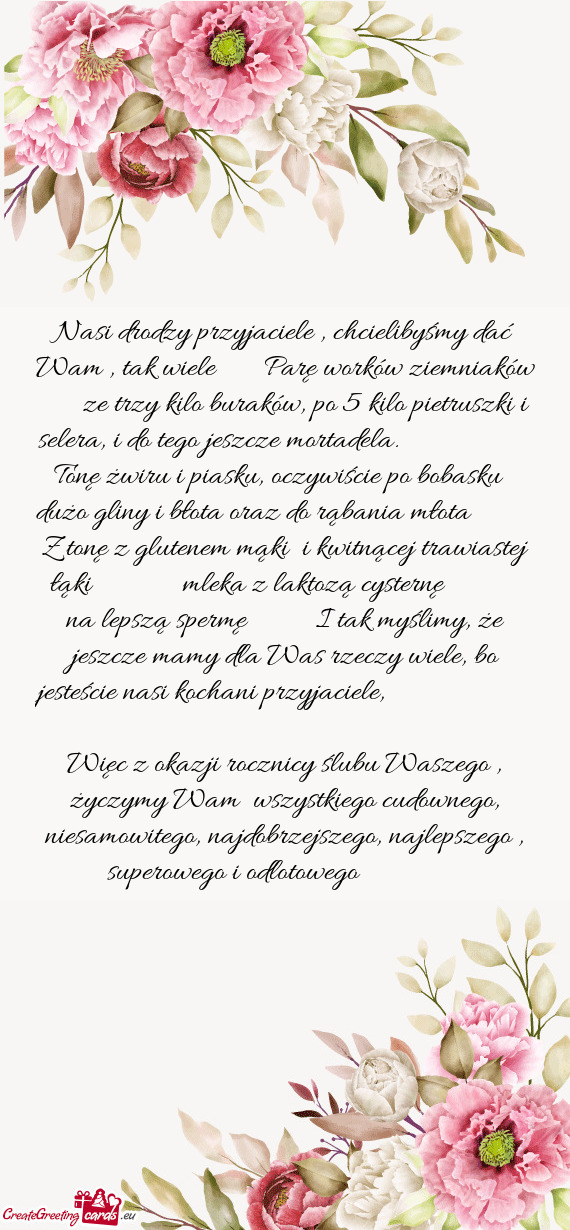 Nasi drodzy przyjaciele , chcielibyśmy dać
Wam , tak wiele Parę worków ziemniaków
ze trzy kilo buraków, po 5 kilo pietruszki i
selera, i do tego jeszcze mortadela.
Tonę żwiru i piasku, oczywiście po bobasku
dużo gliny i błota oraz do rąbania młota
Z tonę z glutenem mąki i kwitnącej trawiastej
łąki mleka z laktozą cysternę
na lepszą spermę I tak myślimy, że
jeszcze mamy dla Was rzeczy wiele, bo
jesteście nasi kochani przyjaciele,
Więc z okazji rocznicy ślubu Waszego ,
życzymy Wam wszystkiego cudownego,
niesamowitego, najdobrzejszego, najlepszego ,
superowego i odlotowego
CreateGreeting cards .eu